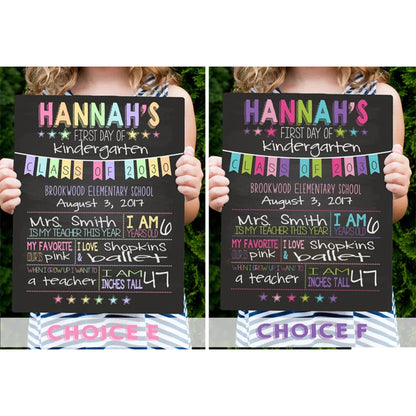 HANNAH'S
FIRST DAY OF
kindergarten
CLASS OF 2030
BROOKWOOD ELEMENTARY SCHOOL
August 3, 2017
Mrs. Smith
IS MY TEACHER THIS YEAR
I AM 6
YEARS OLD
MY FAVORITE
COLOR IS pink
I LOVE Shopkins
& ballet
WHEN I GROW UP I WANT TO BE
a teacher
I AM 47
INCHES TALL
CHOICE E
HANNAH'S
FIRST DAY OF
kindergarten
CLASS OF 2030
BROOKWOOD ELEMENTARY SCHOOL
August 3, 2017
Mrs. Smith
IS MY TEACHER THIS YEAR
I AM 6
YEARS OLD
MY FAVORITE
COLOR IS pink
I LOVE Shopkins
& ballet
WHEN I GROW UP I WANT TO BE
a teacher
I AM 47
INCHES TALL
CHOICE F